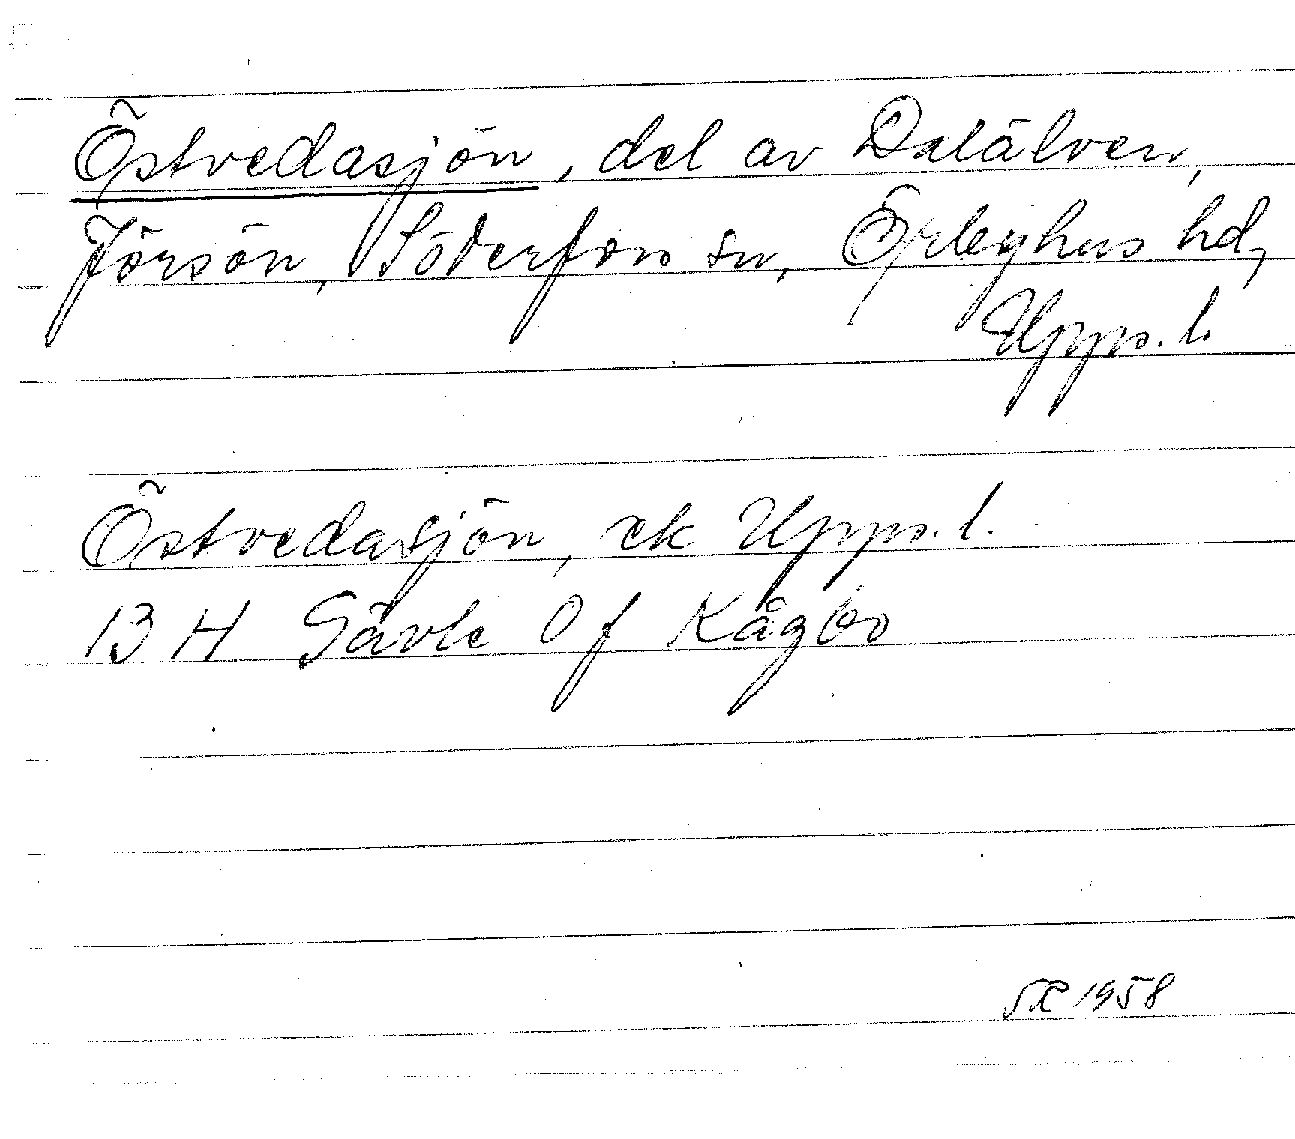 Östvedasjön, del av Dalälven,
Jörsön, Söderfors sn, Örbyhus hd,
Upps. l.
Östvedasjön, ek Upps. l.
13 H Gävle 0 f Kågbo
1958